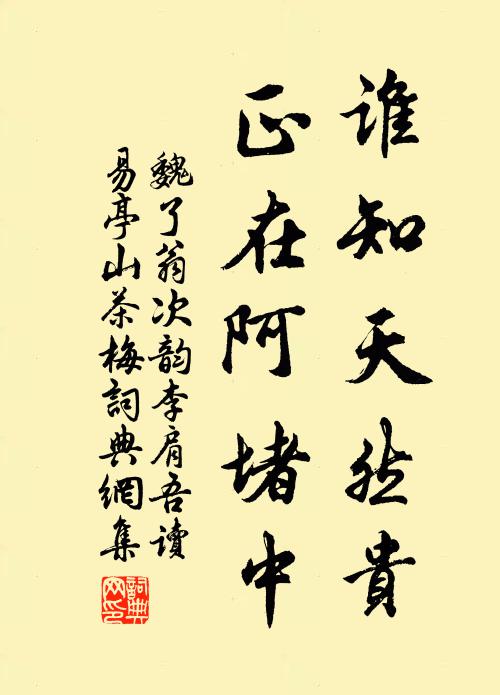 誰知天然貴
正在阿堵中
魏了翁次韵李肩吾讀
易亭山茶梅詞典網集
詞典网印